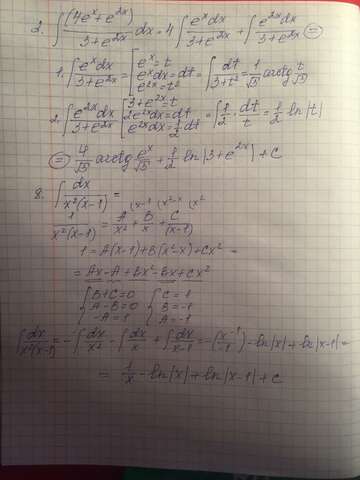 2. ∫ (4eˣ + e²ˣ)/(3+e²ˣ) dx = 4 ∫ eˣdx/(3+e²ˣ) + ∫ e²ˣdx/(3+e²ˣ) ⊜
1. ∫ eˣdx/(3+e²ˣ) = [eˣ = t; eˣdx = dt; e²ˣ = t²] = ∫ dt/(3+t²) = 1/√3 arctg t/√3
2. ∫ e²ˣdx/(3+e²ˣ) [3+e²ˣ = t; 2e²ˣdx = dt; e²ˣdx = 1/2 dt] = ∫ 1/2 · dt/t = 1/2 ln|t|
⊜ 4/√3 arctg eˣ/√3 + 1/2 ln|3+e²ˣ| + C
8. ∫ dx/(x²(x-1)) =
(x-1 (x²-x (x²
1/(x²(x-1)) = A/x² + B/x + C/(x-1)
1 = A(x-1) + B(x²-x) + Cx² =
= Ax - A + Bx² - Bx + Cx²
{B+C=0 {C=1
{A-B=0 {B=-1
{-A=1 {A=-1
∫ dx/(x²(x-1)) = -∫ dx/x² - ∫ dx/x + ∫ dx/(x-1) = -(x⁻¹/-1) - ln|x| + ln|x-1| =
= 1/x - ln|x| + ln|x-1| + C